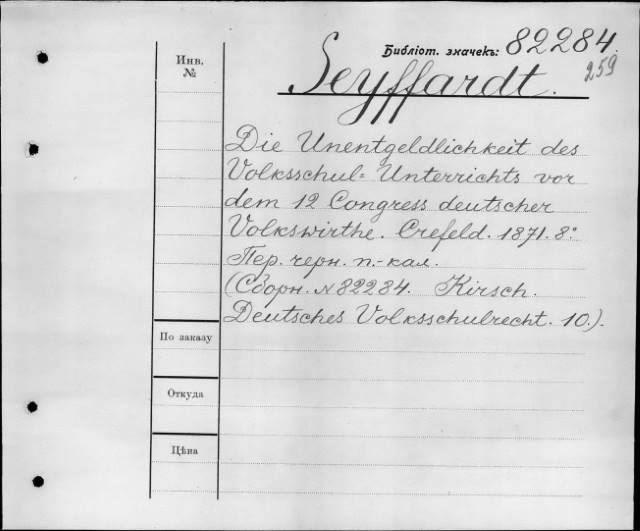 Библіот. значекъ: 82284.
259
Seyffardt.
Инв. №
Die Unentgeldlichkeit des
Volksschul= Unterrichts vor
dem 12 Congress deutscher
Volkswirthe. Crefeld. 1871. 8°
Пер. черн. п.-кал.
(Сборн. № 82284. Kirsch.
Deutsches Volksschulrecht. 10.).
По заказу
Откуда
Цѣна